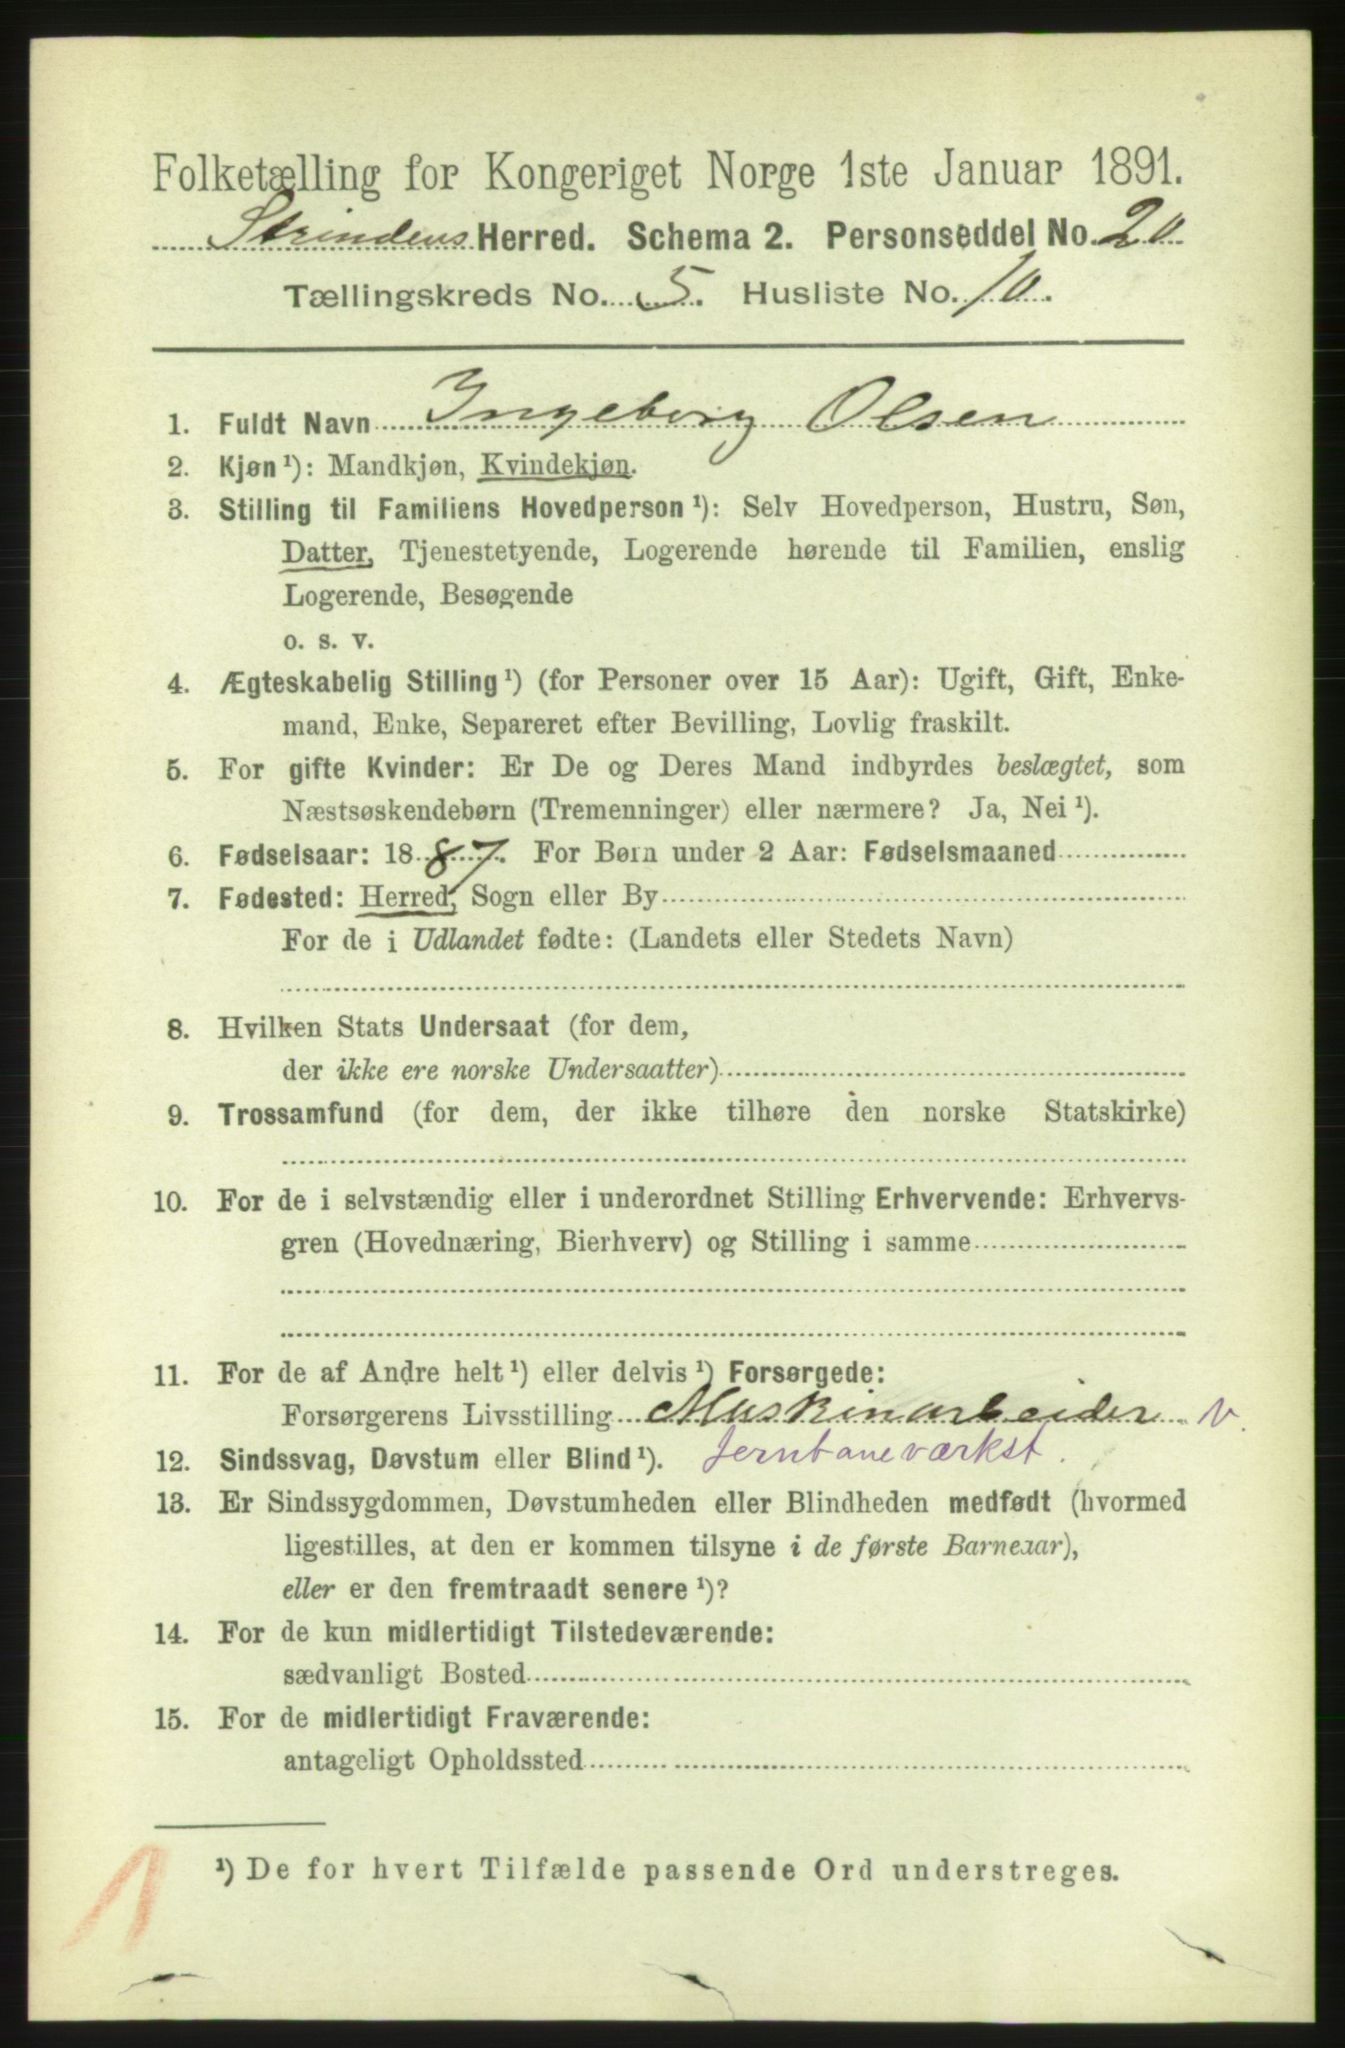 Folketælling for Kongeriget Norge 1ste Januar 1891.
Strindens Herred. Schema 2. Personseddel No. 20
Tællingskreds No. 5. Husliste No. 10.
1. Fuldt Navn Ingeborg Olsen
2. Kjøn¹): Mandkjøn, Kvindekjøn.
3. Stilling til Familiens Hovedperson¹): Selv Hovedperson, Hustru, Søn,
Datter, Tjenestetyende, Logerende hørende til Familien, enslig
Logerende, Besøgende
o. s. v.
4. Ægteskabelig Stilling¹) (for Personer over 15 Aar): Ugift, Gift, Enke-
mand, Enke, Separeret efter Bevilling, Lovlig fraskilt.
5. For gifte Kvinder: Er De og Deres Mand indbyrdes beslægtet, som
Næstsøskendebørn (Tremenninger) eller nærmere? Ja, Nei¹).
6. Fødselsaar: 1887. For Børn under 2 Aar: Fødselsmaaned
7. Fødested: Herred, Sogn eller By
For de i Udlandet fødte: (Landets eller Stedets Navn)
8. Hvilken Stats Undersaat (for dem,
der ikke ere norske Undersaatter)
9. Trossamfund (for dem, der ikke tilhøre den norske Statskirke)
10. For de i selvstændig eller i underordnet Stilling Erhvervende: Erhvervs-
gren (Hovednæring, Bierhverv) og Stilling i samme
11. For de af Andre helt¹) eller delvis¹) Forsørgede:
Forsørgerens Livsstilling Maskinarbeider v.
12. Sindssvag, Døvstum eller Blind¹). Jernbaneværkst.
13. Er Sindssygdommen, Døvstumheden eller Blindheden medfødt (hvormed
ligestilles, at den er kommen tilsyne i de første Barneaar),
eller er den fremtraadt senere¹)?
14. For de kun midlertidigt Tilstedeværende:
sædvanligt Bosted
15. For de midlertidigt Fraværende:
antageligt Opholdssted
¹) De for hvert Tilfælde passende Ord understreges.
1